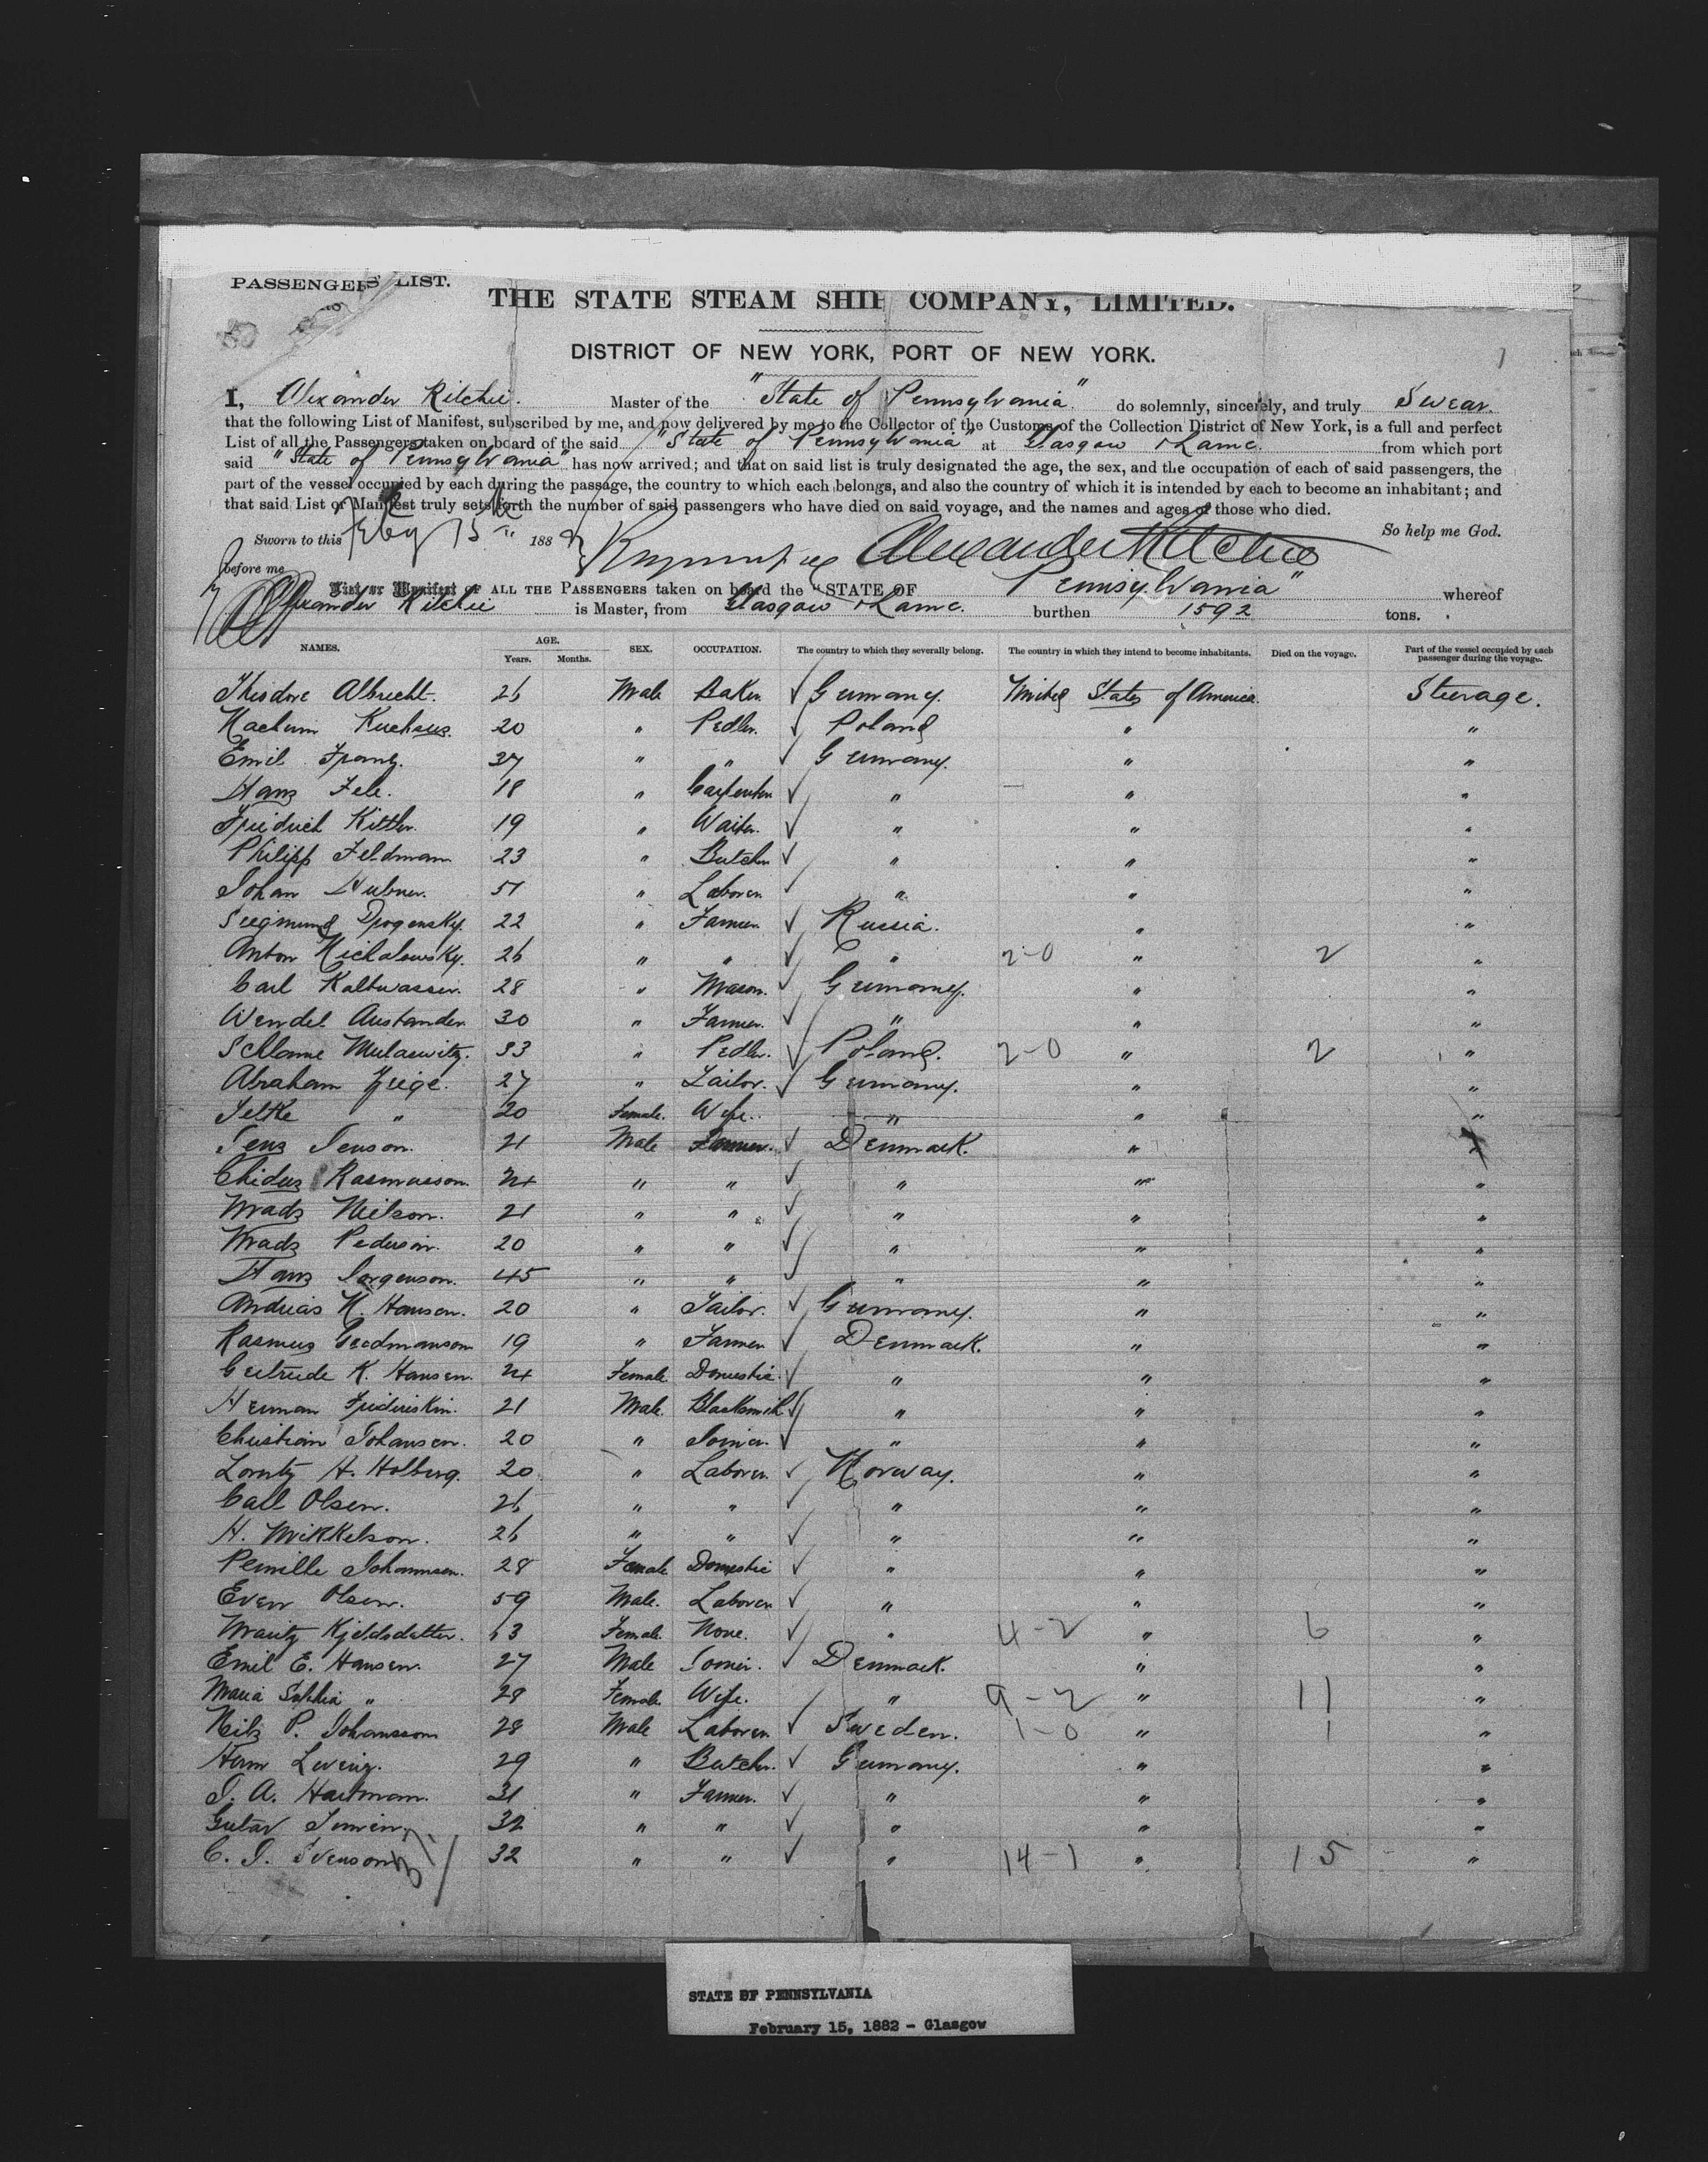 PASSENGERS' LIST.
THE STATE STEAM SHIP COMPANY, LIMITED.
DISTRICT OF NEW YORK, PORT OF NEW YORK.
1
I, Alexander Ritchie. Master of the "State of Pennsylvania" do solemnly, sincerely, and truly Swear.
that the following List of Manifest, subscribed by me, and now delivered by me to the Collector of the Customs of the Collection District of New York, is a full and perfect
List of all the Passengers taken on board of the said "State of Pennsylvania" at Glasgow & Larne. from which port
said "State of Pennsylvania" has now arrived; and that on said list is truly designated the age, the sex, and the occupation of each of said passengers, the
part of the vessel occupied by each during the passage, the country to which each belongs, and also the country of which it is intended by each to become an inhabitant; and
that said List or Manifest truly sets forth the number of said passengers who have died on said voyage, and the names and ages of those who died.
So help me God.
Sworn to this Feby 15th 1882 Alexander Ritchie
before me
List or Manifest OF ALL THE PASSENGERS taken on board the "STATE OF Pennsylvania" whereof
Alexander Ritchie is Master, from Glasgow & Larne. burthen 1592 tons.
NAMES. AGE. Years. Months. SEX. OCCUPATION. The country to which they severally belong. The country in which they intend to become inhabitants. Died on the voyage. Part of the vessel occupied by each passenger during the voyage.
Theodore Albrecht. 26 Male Baker ✓ Germany. United States of America. Steerage.
Kuchsus. 20 " Pedler. ✓ Poland " "
Emil Franz. 37 " " ✓ Germany. " "
Hans Fele. 18 " Carpenter ✓ " " "
Friedrich Kittler. 19 " Waiter. ✓ " " "
Philipp Feldmann 23 " Butcher ✓ " " "
Johan Hubner. 51 " Laborer. ✓ " " "
Siegmund Drogensky. 22 " Farmer. ✓ Russia. " "
Anton Michalowsky. 26 " " ✓ " 2-0 " 2 "
Carl Kaltwasser. 28 " Mason. ✓ Germany. " "
Wendel Austander 30 " Farmer. ✓ " " "
Schlome Mulaewitz. 33 " Pedler. ✓ Poland. 2-0 " 2 "
Abraham Zeige. 27 " Tailor. ✓ Germany. " "
Jetke " 20 Female. Wife. " " "
Jens Jenson. 21 Male Farmer. ✓ Denmark. " "
Rasmusson. 24 " " ✓ " " "
Mads Neilson. 21 " " ✓ " " "
Mads Pederson. 20 " " ✓ " " "
Hans Jorgenson. 45 " " ✓ " " "
Andreas N. Hansen. 20 " Tailor. ✓ Germany. " "
Rasmus Goodmanson 19 " Farmer ✓ Denmark. " "
Gertrude K. Hansen. 24 Female. Domestic. ✓ " " "
Herman Frideriskin. 21 Male. Blacksmith ✓ " " "
Christian Johansen. 20 " Joiner. ✓ " " "
Lorntz H. Holberg. 20 " Laborer. ✓ Norway. " "
Carl Olsen. 26 " " ✓ " " "
H. Mikkelson. 26 " " ✓ " " "
Pernille Johannsen. 28 Female Domestic ✓ " " "
Even Olsen. 59 Male. Laborer ✓ " " "
Kjeldsdatter. 63 Female. None. ✓ " 4-2 " 6 "
Emil E. Hansen. 27 Male Joiner. ✓ Denmark. " "
Maria Sophia " 28 Female. Wife. " 9-2 " 11 "
Nils P. Johansson 28 Male Laborer. ✓ Sweden. 1-0 " 1 "
Herm Leving. 29 " Butcher. ✓ Germany. " "
J. A. Hartman. 31 " Farmer. ✓ " " "
Gustav 32 " " ✓ " " "
C. J. Svenson 32 " " ✓ " 14-1 " 15 "
STATE OF PENNSYLVANIA
February 15, 1882 - Glasgow